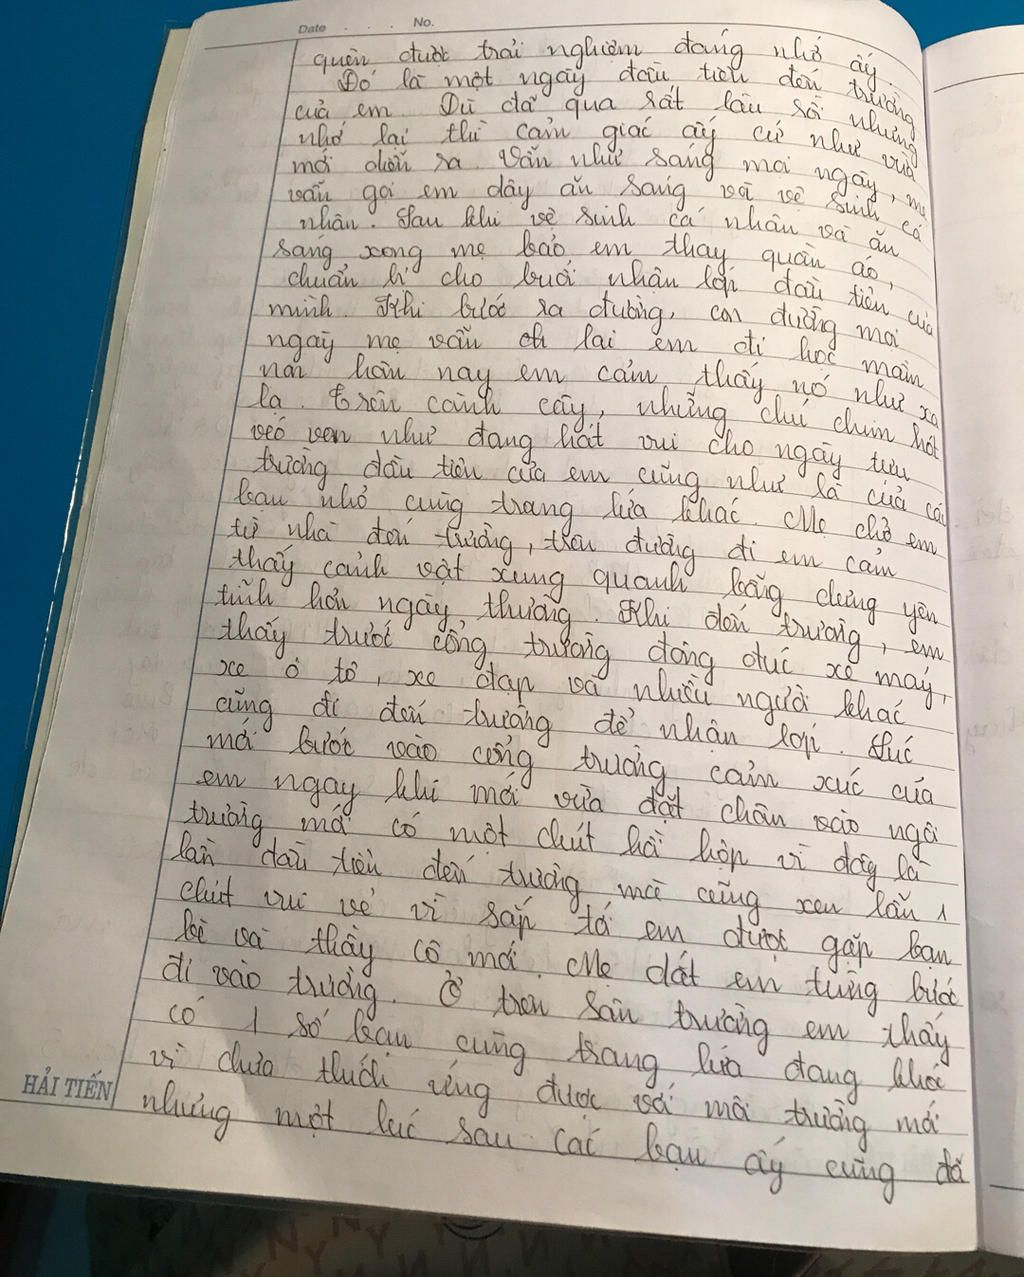 Date . . . No.
quên được trải nghiệm đáng nhớ ấy.
Đó là một ngày đầu tiên đến trường
của em. Dù đã qua rất lâu rồi nhưng
nhớ lại thì cảm giác ấy cứ như vừa
mới diễn ra. Vẫn như sáng mọi ngày, mẹ
vẫn gọi em dậy ăn sáng và vệ sinh cá
nhân. Sau khi vệ sinh cá nhân và ăn
sáng xong mẹ bảo em thay quần áo,
chuẩn bị cho buổi nhận lớp đầu tiên của
mình. Khi bước ra đường, con đường mọi
ngày mẹ vẫn chở lại em đi học mầm
non hôm nay em cảm thấy nó như xa
lạ. Trên cành cây, những chú chim hót
véo von như đang hát vui cho ngày tựu
trường đầu tiên của em cũng như là của các
bạn nhỏ cùng trang lứa khác. Mẹ chở em
từ nhà đến trường, trên đường đi em cảm
thấy cảnh vật xung quanh bỗng dưng yên
tĩnh hơn ngày thường. Khi đến trường, em
thấy trước cổng trường đông đúc xe máy,
xe ô tô, xe đạp và nhiều người khác
cũng đi đến trường để nhận lớp. Lúc
mới bước vào cổng trường cảm xúc của
em ngay khi mới vừa đặt chân vào ngôi
trường mới có một chút hồi hộp vì đây là
lần đầu tiên đến trường mà cũng xen lẫn 1
chút vui vẻ vì sắp tới em được gặp bạn
bè và thầy cô mới. Mẹ dắt em từng bước
đi vào trường. Ở trên sân trường em thấy
có 1 số bạn cùng trang lứa đang khóc
vì chưa thích ứng được với môi trường mới
nhưng một lúc sau các bạn ấy cũng đã
HẢI TIẾN